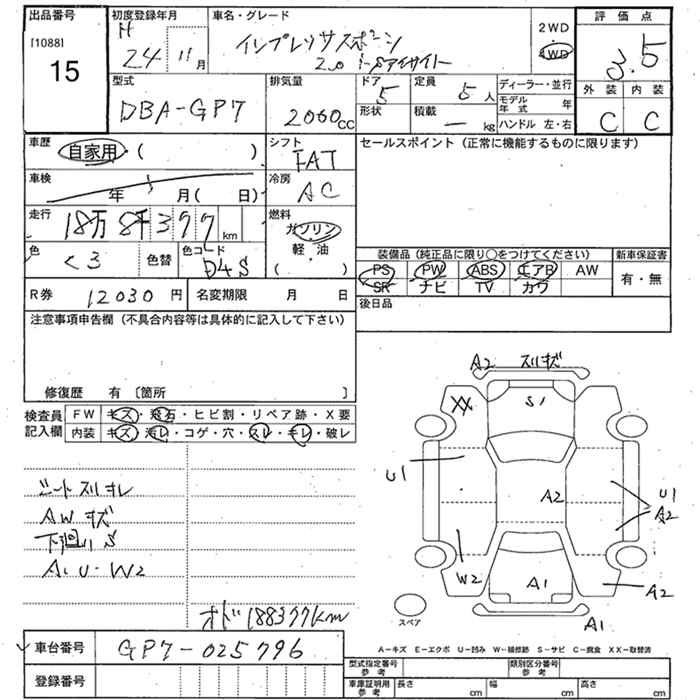 出品番号 初度登録年月 車名・グレード 2WD 評価点
[1088] H インプレッサスポーツ 4WD 3.5
15 24 11月 2.0 i-Sアイサイト
外装 内装
型式 排気量 ドア 定員 ディーラー・並行
DBA-GP7 2000CC 5 5人 モデル年式 年 C C
形状 積載 kg ハンドル 左・右
車歴 自家用 ( ) シフト セールスポイント (正常に機能するものに限ります)
FAT
車検 年 月( 日) 冷房
AC
走行 18万 8千 3 7 7 km 燃料
ガソリン
軽・油
( )
色 クロ 色替 色コード D4S
装備品 (純正品に限り○をつけてください) 新車保証書
PS PW ABS エアB AW 有・無
SR ナビ TV カワ
R券 12030円 名変期限 月 日 後日品
注意事項申告欄 (不具合内容等は具体的に記入して下さい)
修復歴 有 〔箇所 〕
検査員 FW キズ・飛石・ヒビ割・リペア跡・X要
記入欄 内装 キズ・汚レ・コゲ・穴・スレ・キレ・破レ
シートスレキレ
AWキズ
下回りS
A.U.W2
オド188377km
A2 スリキズ
XX
S1
U1
A2
U1
A2
W2
A1
A2
A1
スペア
A-キズ E-エクボ U-凹み W-補修跡 S-サビ C-腐食 XX-取替済
車台番号 GP7-025796
登録番号
型式指定番号 参考 類別区分番号 参考
車庫証明用 参考 長さ cm 幅 cm 高さ cm